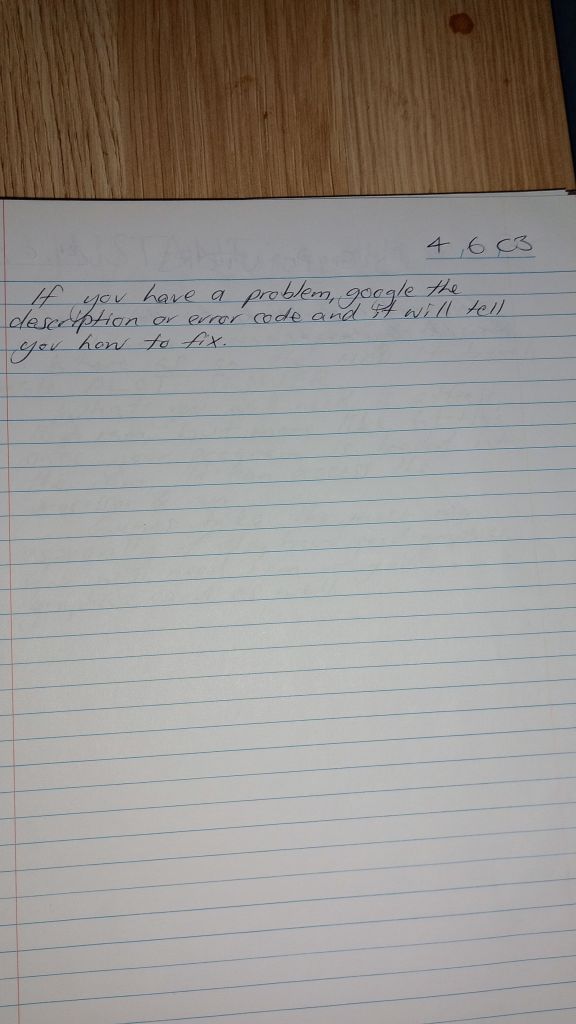 4,6 C3
If you have a problem, google the
description or error code and it will tell
you how to fix.